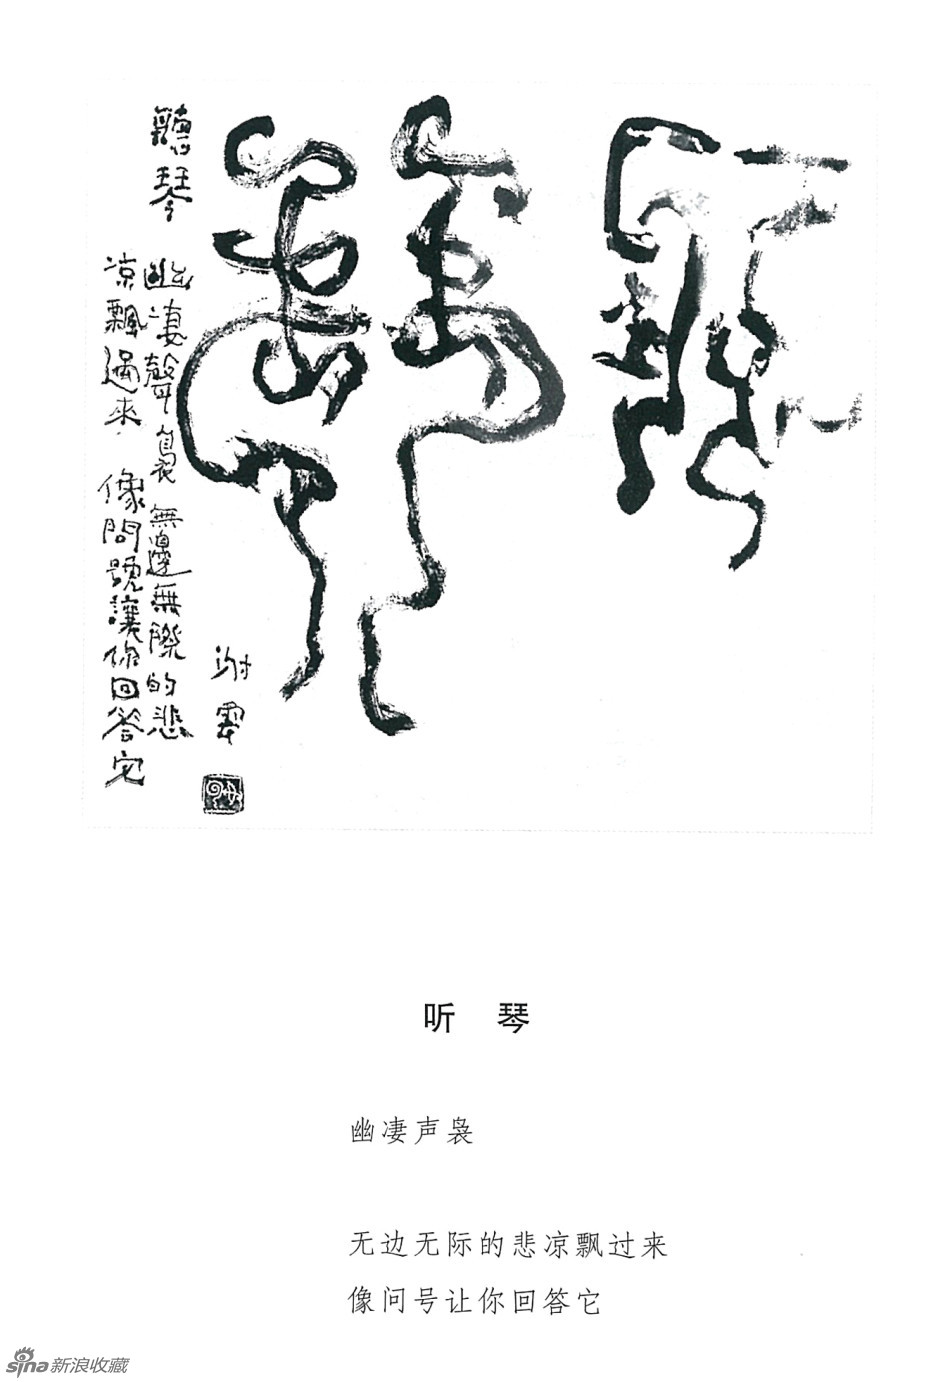 聽琴
幽凄聲裊 無邊無際的悲
凉飄過來 像問號讓你回答它
谢雲
听 琴
幽凄声袅
无边无际的悲凉飘过来
像问号让你回答它
sina新浪收藏